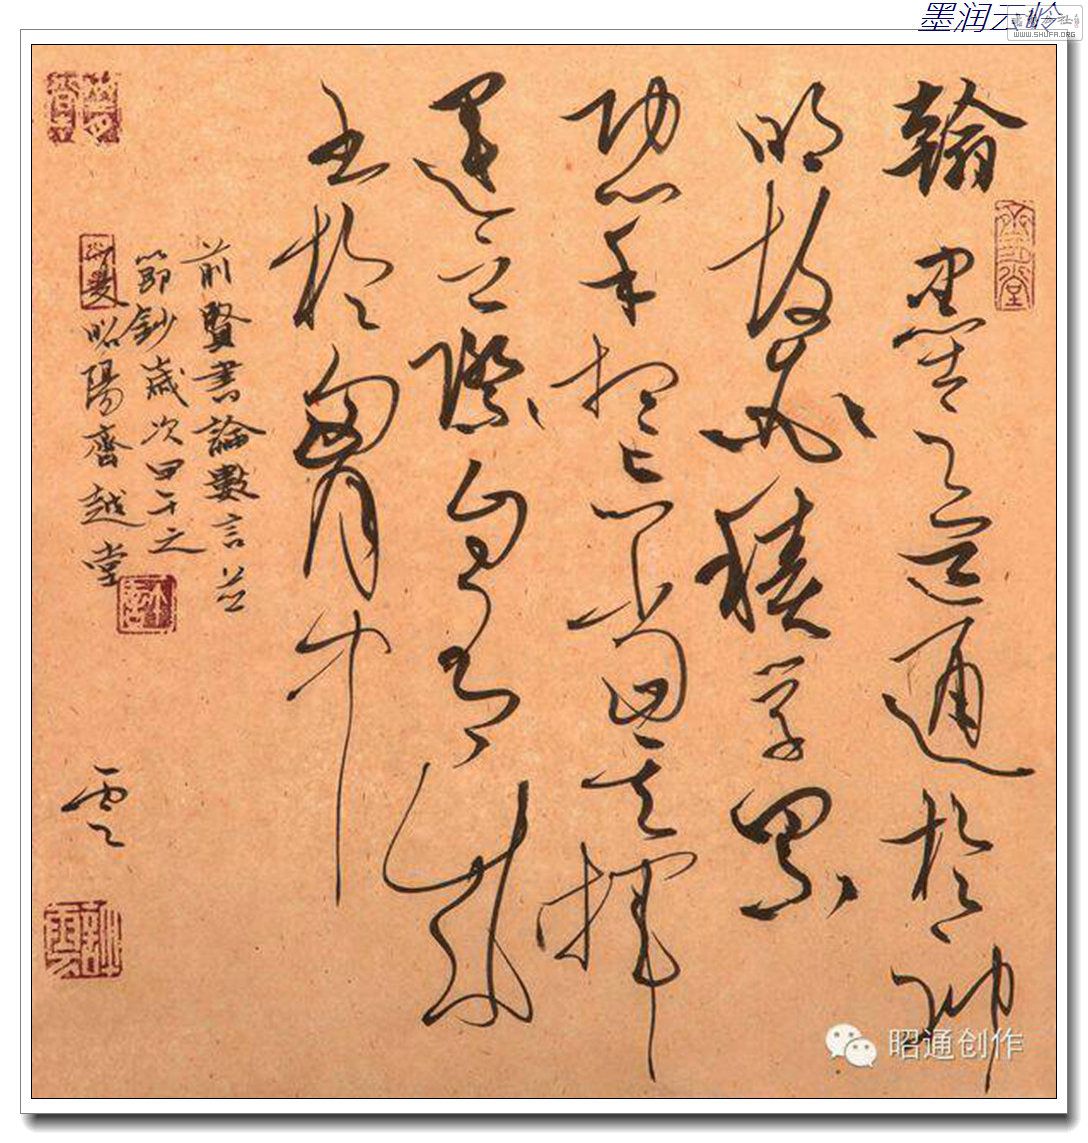 墨润云岭
WWW.SHUFA.ORG
翰墨之道通於神
明故必積學累
功心手相忘當其揮
運之際自有成
書於胸中
前賢書論數言並
節鈔歲次甲午之
夏昭陽齊越堂
雲
昭通创作